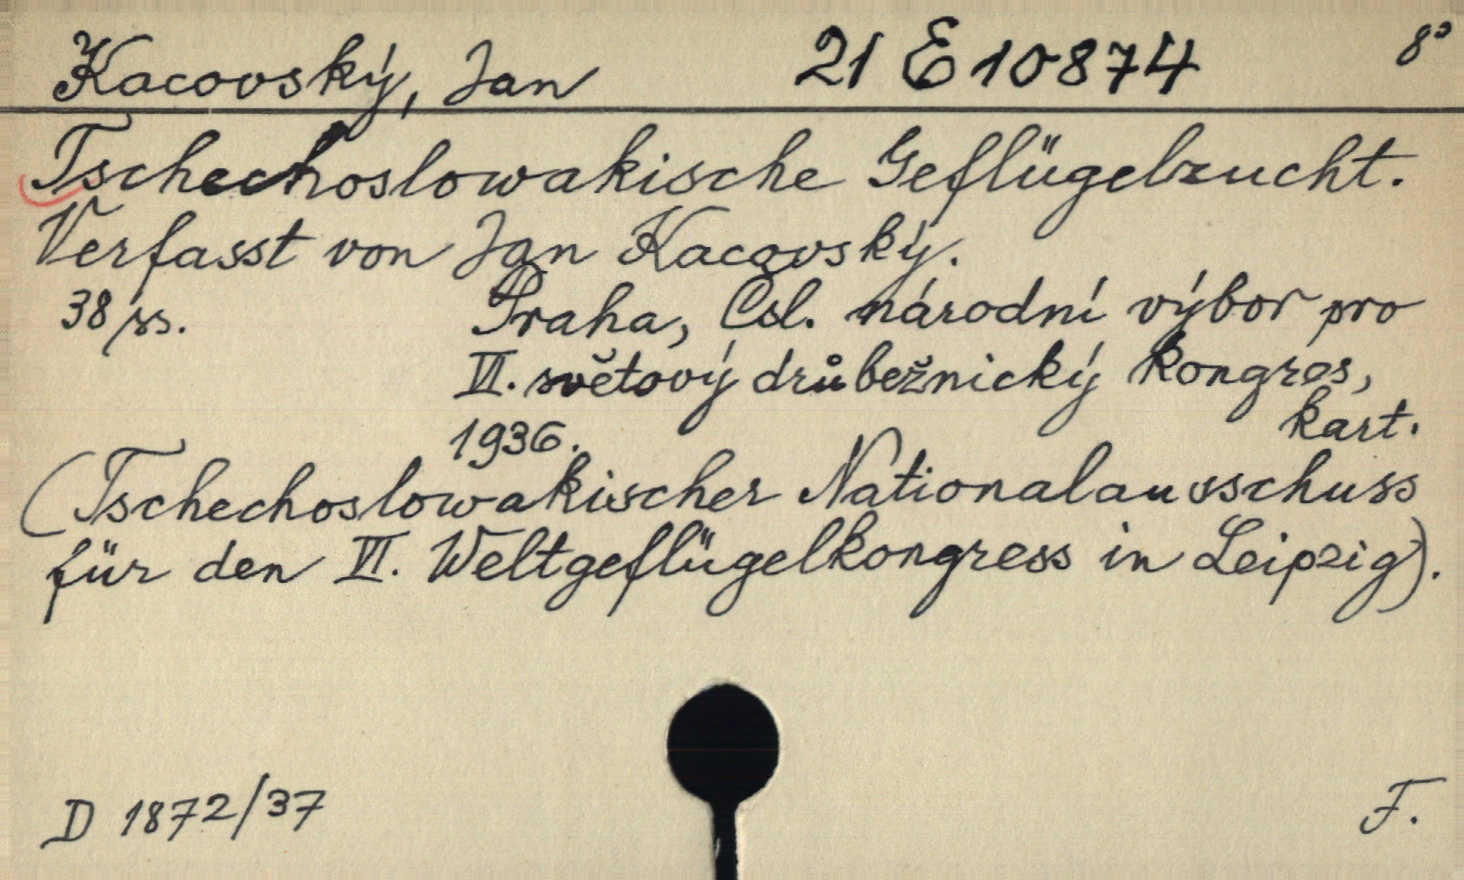 Kacovský, Jan 21 E 10874 8°
Tschechoslowakische Geflügelzucht.
Verfasst von Jan Kacovský.
38 ss. Praha, Čsl. národní výbor pro
VI. světový drůbežnický kongres,
1936. kart.
(Tschechoslowakischer Nationalausschuss
für den VI. Weltgeflügelkongress in Leipzig).
D 1872/37 F.